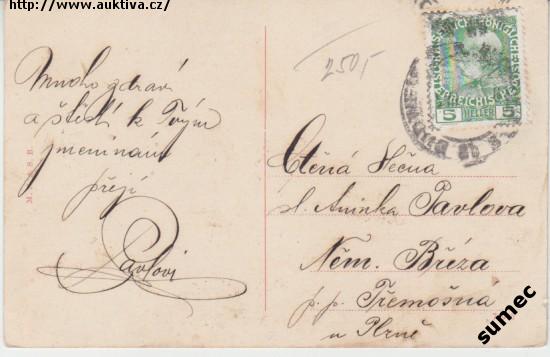 http://www.auktiva.cz/
250,-
Mnoho zdraví
a štěstí k Tvým
jmeninám
přejí
Pavlovi
5 HELLER 5
Ctěná Slečna
sl. Aninka Pavlova
Něm. Bříza
p. p. Třemošna
u Plzně
sumec